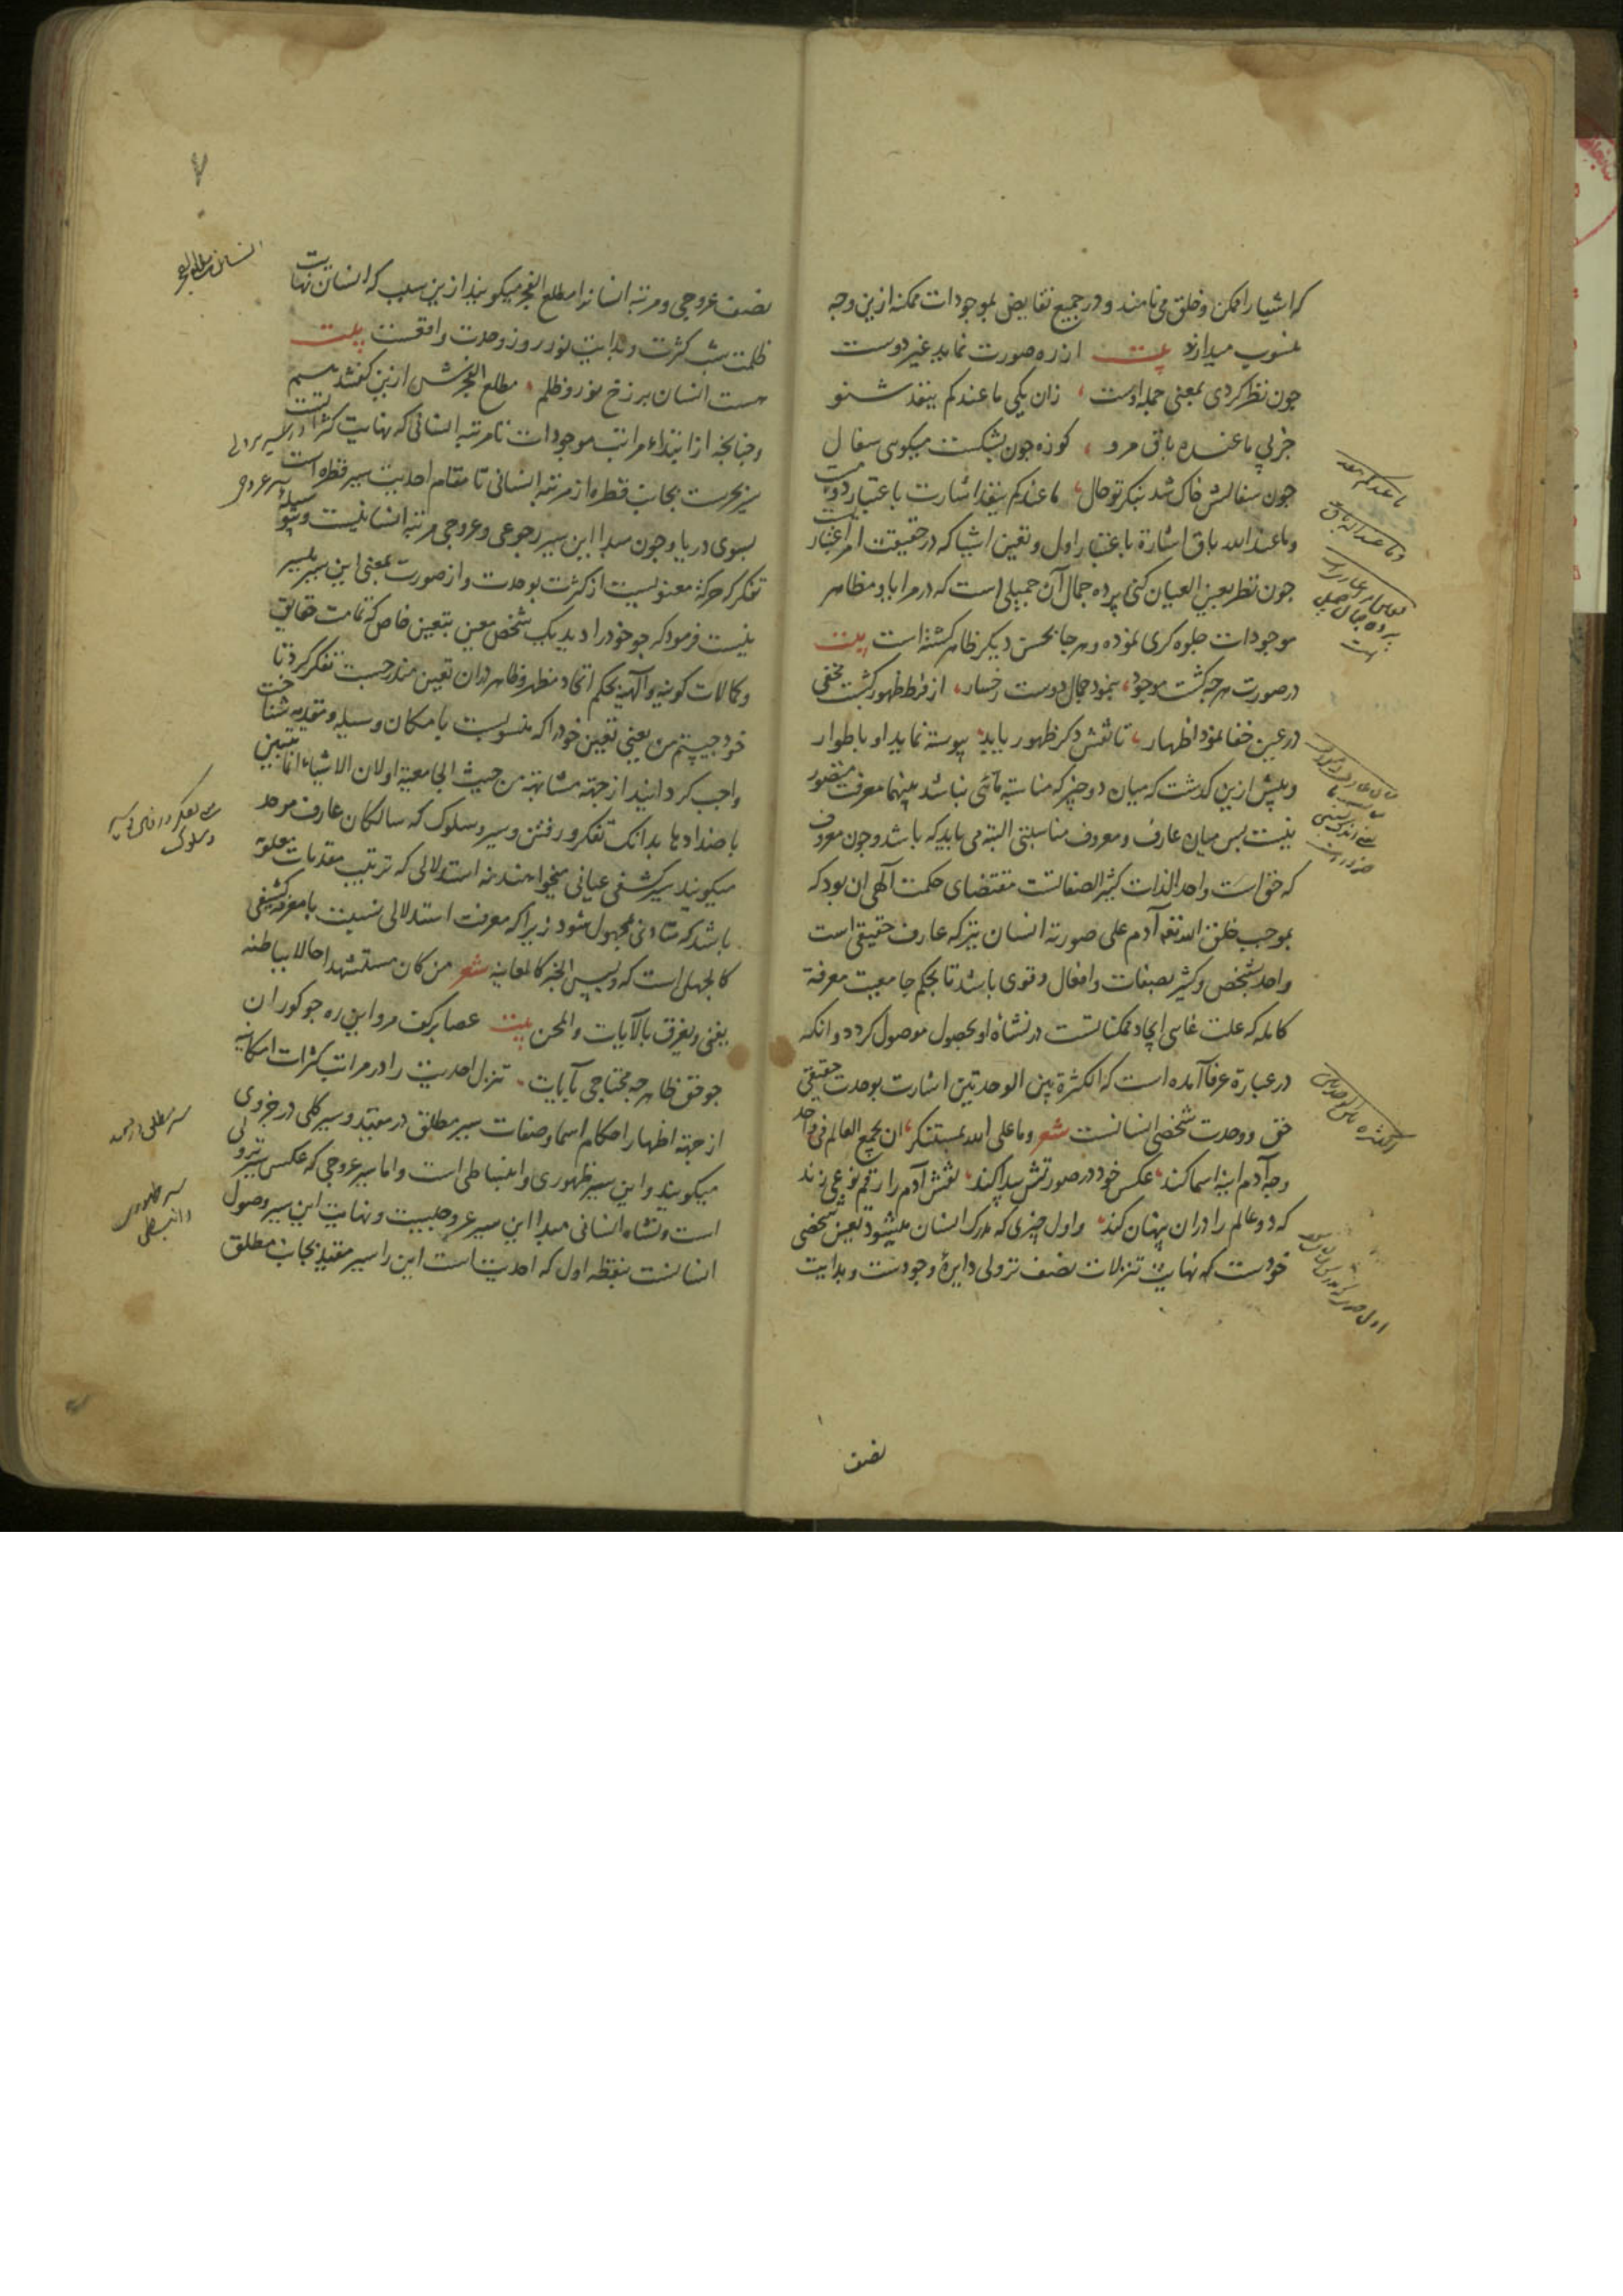 که اشیا را ممکن و خلق می نامند و در جمیع نقایض بموجودات ممکنه ازین وجه
منسوب میدارند بیت از ره صورت نماید غیر دوست
چون نظر کردی بمعنی جمله اوست زان یکی ماعندکم ینفد شنو
جز پی ماعنده باق مرو کوزه چون بشکست میکوی سفال
چون سفالش خاک شد بنکر تو حال ماعندکم ینفد اشارت باعتبار دویمست
وماعندالله باق اشارة باعتبار اول و تعین اشیا که در حقیقت امر اعتباریست
چون نظر بعین العیان کنی پرده جمال آن جمیلی است که در مرایا و مظاهر
موجودات جلوه کری نموده و هر جا بحسن دیکر ظاهر کشته است بیت
در صورت هر چه کشت موجود بنمود جمال دوست رخسار از فرط ظهور کشت مخفی
در عین خفا نمود اظهار تا نقش دکر ظهور یابد پیوسته نماید او باطوار
و پیش ازین کذشت که میان دو چیز که مناسبة مائی نباشد بینهما معرفت متصور
نیست پس میان عارف و معروف مناسبتی البته می باید که باشد و چون معروف
که حق است واحد الذات کثیر الصفاتست مقتضای حکمت آلهی ان بود که
بموجب خلق الله تعه آدم علی صورته انسان نیز که عارف حقیقی است
واحد بشخص و کثیر بصفات و افعال و قوی باشد تا بحکم جامعیت معرفة
کامله که علت غایی ایجاد ممکناتست در نشاة او بحصول موصول کردد و انکه
در عبارة عرفا آمده است که الکثرة بین الوحدتین اشارت بوحدت حقیقی
حق و وحدت شخصی انسانست شعر وما علی الله بمستنکر ان یجمع العالم فی واحد
وجه آدم اینه اسما کند عکس خود در صورتش پیدا کند نقش آدم را رقم نوعی زند
که دو عالم را دران پنهان کند و اول چیزی که مدرک انسان میشود تعین شخصی
خودست که نهایت تنزلات نصف نزولی دایرۀ وجودست و بدایت
نصف
ماعندکم ینفد
وما عندالله باق
پرده جمال جمیل
است
الکثرة بین الوحدتین
۷
نصف عروجی و مرتبه انسانرا مطلع الفجر میکویند ازین سبب که انسان نهایت
ظلمت شب کثرت و بدایت نور روز وحدت واقعست بیت
هست انسان برزخ نور و ظلم مطلع الفجرش ازین کفتند هم
و چنانچه از ابتداء مراتب موجودات تا مرتبه انسانی که نهایت کثراتست
سیر بحرست بجانب قطره از مرتبه انسانی تا مقام احدیت سیر قطره است
بسوی دریا و چون مبدا این سیر رجوعی و عروجی مرتبه انسانیست و بوسیله
تفکر که حرکة معنویست از کثرت بوحدت و از صورت بمعنی این سیر میسر
نیست فرمود که چو خود را دید یک شخص معین بتعین خاص که تمامت حقایق
و کمالات کونیه و آلهیه بحکم اتحاد مظهر و ظاهر دران تعین مندرجست تفکر کرد تا
خود چیستم من یعنی تعین خود را که منسوبست بامکان وسیله و مقدمه شناخت
واجب کردانید از جهة مشابهة من حیث الجامعیة او لان الاشیاء انما تتبین
باضدادها بدانک تفکر و رفتن و سیر و سلوک که سالکان عارف موحد
میکویند سیر کشفی عیانی میخواهند نه استدلالی که ترتیب مقدمات معلومه
باشد که متادی مجهول شود زیرا که معرفت استدلالی نسبت با معرفه کشفی
کالجهل است که و لیس الخبر کالمعاینه شعر من کان مستشهدا حالا بباطنه
یغنی و یغرق بالآیات والمحن بیت عصا بر کف مرو این ره چو کوران
چو حق ظاهر چه محتاجی بآیات تنزل احدیت را در مراتب کثرات امکانیه
از جهة اظهار احکام اسما و صفات سیر مطلق در مقید و سیر کلی در جزوی
میکویند و این سیر ظهوری و انبساطی است و اما سیر عروجی که عکس سیر نزولی
است و نشاه انسانی مبدا این سیر عروجیست و نهایت این سیر وصول
انسانست بنقطه اول که احدیت است این را سیر مقید بجانب مطلق
انسان مطلع الفجر
سیر نزولی
سیر عروجی
و سلوک
سیر مطلق در مقید
سیر ظهوری
و انبساطی